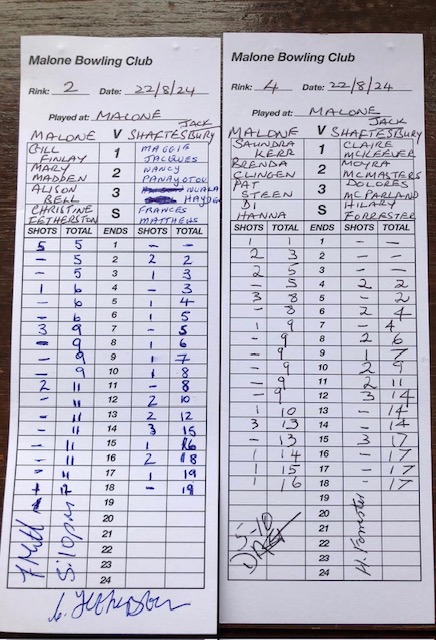 Malone Bowling Club
Rink: 2 Date: 22/8/24
Played at: MALONE
JACK
MALONE V SHAFTESBURY
GILL FINLAY 1 MAGGIE JACQUES
MARY MADDEN 2 NANCY PANAYOTOU
ALISON BELL 3 NUALA HAYDEN
CHRISTINE FETHERSTON S FRANCES MATTHEWS
SHOTS TOTAL ENDS SHOTS TOTAL
5 5 1 - -
- 5 2 2 2
- 5 3 1 3
1 6 4 - 3
- 6 5 1 4
- 6 6 1 5
3 9 7 - 5
- 9 8 1 6
- 9 9 1 7
- 9 10 1 8
2 11 11 - 8
- 11 12 2 10
- 11 13 2 12
- 11 14 3 15
- 11 15 1 16
- 11 16 2 18
- 11 17 1 19
18 - 19
19
20
21
22
23
24
5:10pm
Malone Bowling Club
Rink: 4 Date: 22/8/24
Played at: MALONE
JACK
MALONE V SHAFTESBURY
SAUNDRA KERR 1 CLAIRE MCKEEVER
BRENDA CLINGEN 2 MOYRA MCMASTERS
PAT STEEN 3 DOLORES MCPARLAND
DI HANNA S HILARY FORRESTER
SHOTS TOTAL ENDS SHOTS TOTAL
1 1 1 - -
2 3 2 - -
2 5 3 - -
- 5 4 2 2
3 8 5 - 2
- 8 6 2 4
1 9 7 - 4
- 9 8 2 6
- 9 9 1 7
- 9 10 2 9
- 9 11 2 11
- 9 12 3 14
1 10 13 - 14
3 13 14 - 14
- 13 15 3 17
1 14 16 - 17
1 15 17 - 17
1 16 18 - 17
19
20
21
22
23
24
5-10
H. Forrester